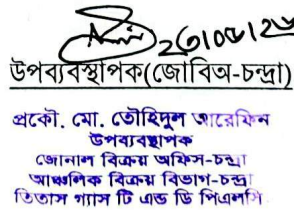 উপব্যবস্থাপক(জোবিঅ-চন্দ্রা)
প্রকৌ. মো. তৌহিদুল আরেফিন
উপব্যবস্থাপক
জোনাল বিক্রয় অফিস-চন্দ্রা
আঞ্চলিক বিক্রয় বিভাগ-চন্দ্রা
তিতাস গ্যাস টি এন্ড ডি পিএলসি